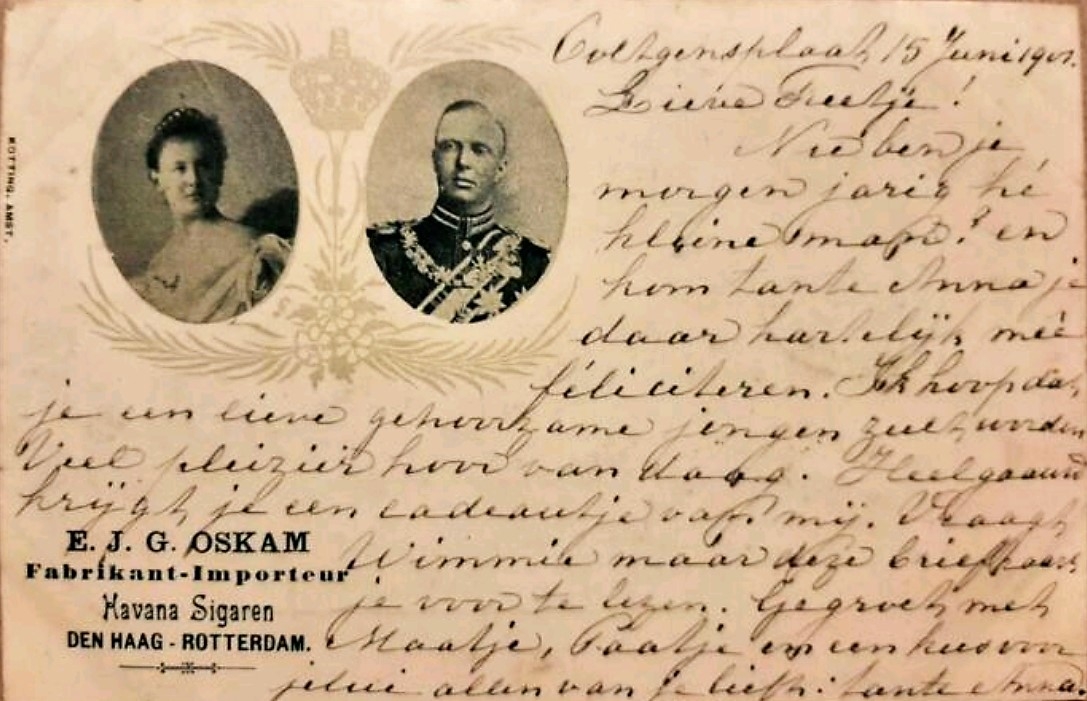 Ooltgensplaat 15 Juni 1901.
Lieve Feetje!
Nu ben je
morgen jarig hé
kleine man? en
kom tante Anna je
daar hartelijk meé
féliciteren. Ik hoop dat
je een lieve gehoorzame jongen zult worden
Veel pleizier hoor van daag. Heel gaauw
krijgt je een cadeautje van mij. Vraagt
Wimmie maar deze briefkaart
je voor te lezen. Gegroet met
Maatje, Paatje en een kus voor
jelui allen van je liefh: tante Anna.
KOTTING, AMST.
E. J. G. OSKAM
Fabrikant-Importeur
Havana Sigaren
DEN HAAG - ROTTERDAM.